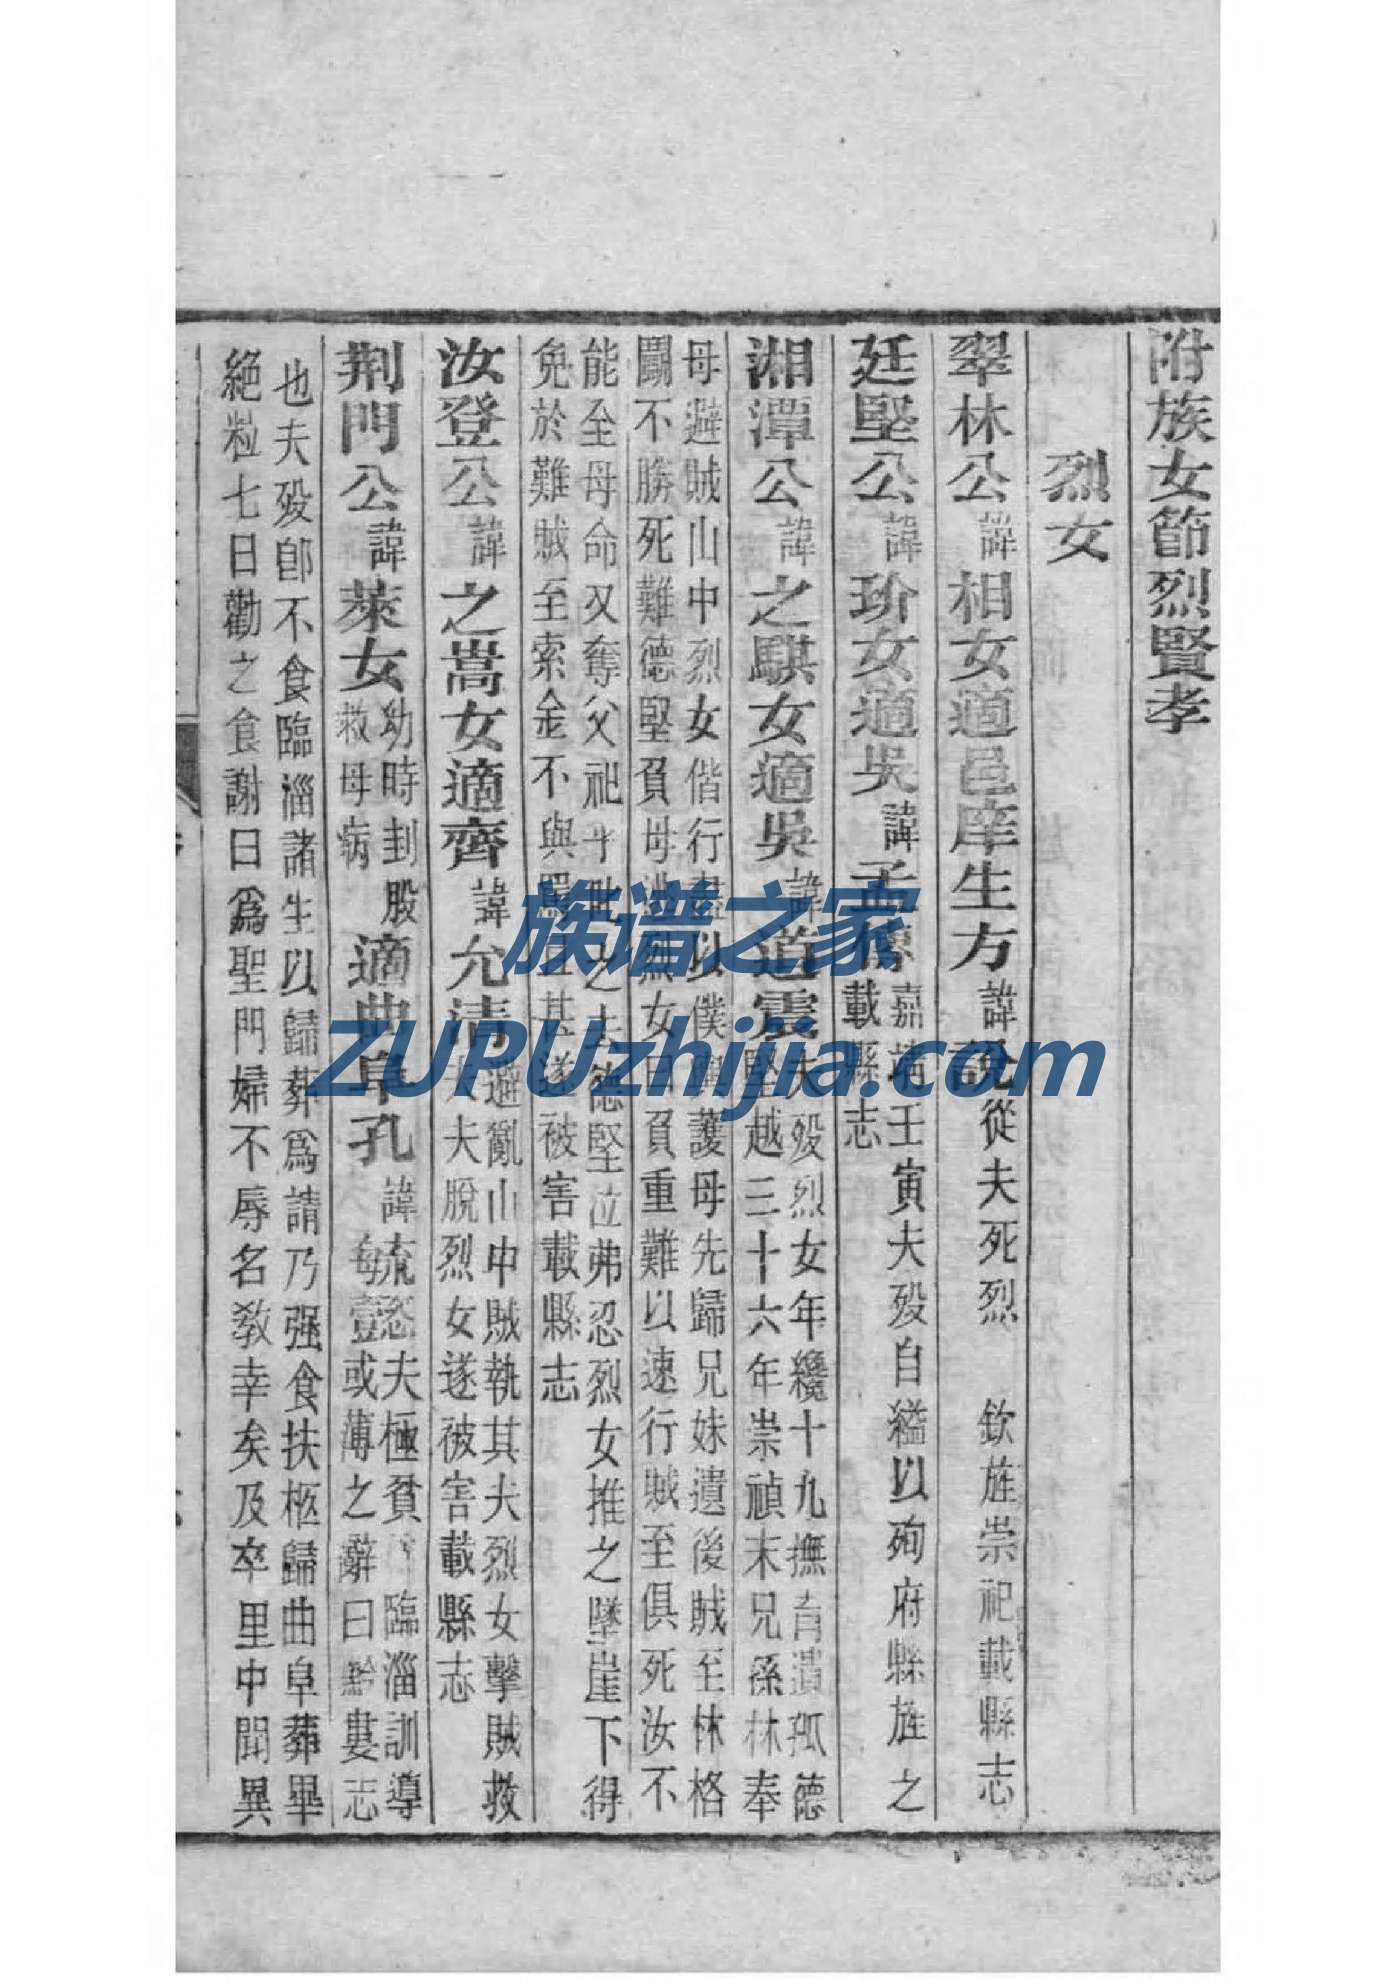 附族女節烈賢孝
烈女
翠林公諱相女適邑庠生方諱說從夫死烈 欽旌崇祀載縣志
廷堅公諱玠女適吳諱孟 嘉靖壬寅夫殁自縊以殉府縣旌之
載縣志
湘潭公諱之騏女適吳諱道震夫殁烈女年纔十九撫育遺孤德
堅越三十六年崇禎末兄孫林奉
母避賊山中烈女偕行盡以僕輿護母先歸兄妹遺後賊至林格
鬭不勝死難德堅負母逃烈女曰負重難以速行賊至俱死汝不
能至母命又奪父祀乎叱之去德堅泣弗忍烈女推之墜崖下得
免於難賊至索金不與罵且甚遂被害載縣志
汝登公諱之嵩女適齊諱允清避亂山中賊執其夫烈女擊賊救
夫夫脫烈女遂被害載縣志
荆門公諱萊女幼時刲股
救母病
適曲阜孔諱 夫極貧 臨淄訓導
每壹 或薄之辭曰黔婁志
也夫殁卽不食臨淄諸生以歸葬爲請乃强食扶柩歸曲阜葬畢
絕粒七日勸之食謝曰爲聖門婦不辱名敎幸矣及卒里中聞異
族谱之家
ZUPUzhijia.com